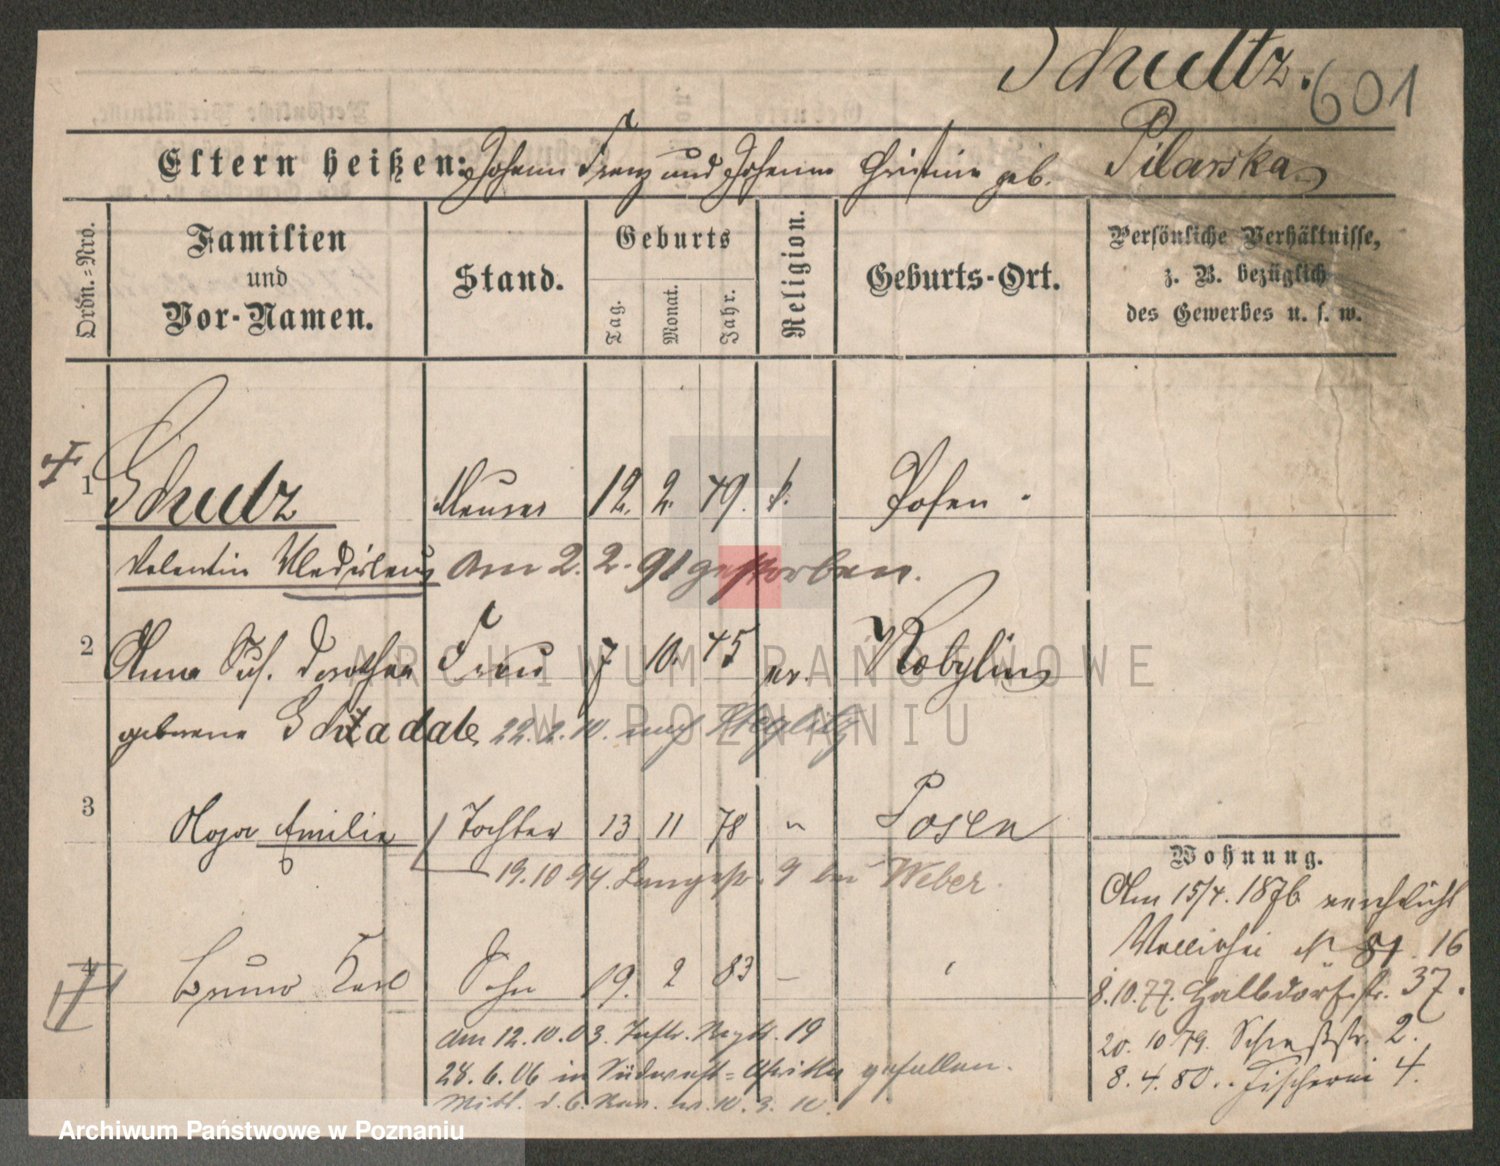 Schultz. 601
Eltern heißen: Johann Franz und Johanna Christine geb. Pilarska
Ordn.=Nro.
Familien
und
Vor-Namen.
Stand.
Geburts
Tag.
Monat.
Jahr.
Religion.
Geburts-Ort.
Persönliche Verhältnisse,
z. B. bezüglich
des Gewerbes u. s. w.
1 Schulz Maurer 12. 2. 49. k. Posen
Valentin Wladislaus am 2. 2. 91 gestorben.
2 Anna Dorothea Frau 7 10. 45 ev. Kobylin
geborene 22. 2. 10. nach Steglitz
3 Olga Emilie Tochter 13 11 78 " Posen
19.10.94. Langestr. 9 bei Weber.
4 Bruno Karl Sohn 19. 2 83
am 12.10.03. Inftr. Regt. 19
28.6.06 in Südwest=Afrika gefallen.
Wohnung.
Am 15/4. 1876
Wallischei N. 81. 16
8.10.77. Halbdorfstr. 37.
20. 10 79. Schießstr. 2.
8. 4. 80. . Fischerei 4.
ARCHIWUM PAŃSTWOWE
W POZNANIU
Archiwum Państwowe w Poznaniu